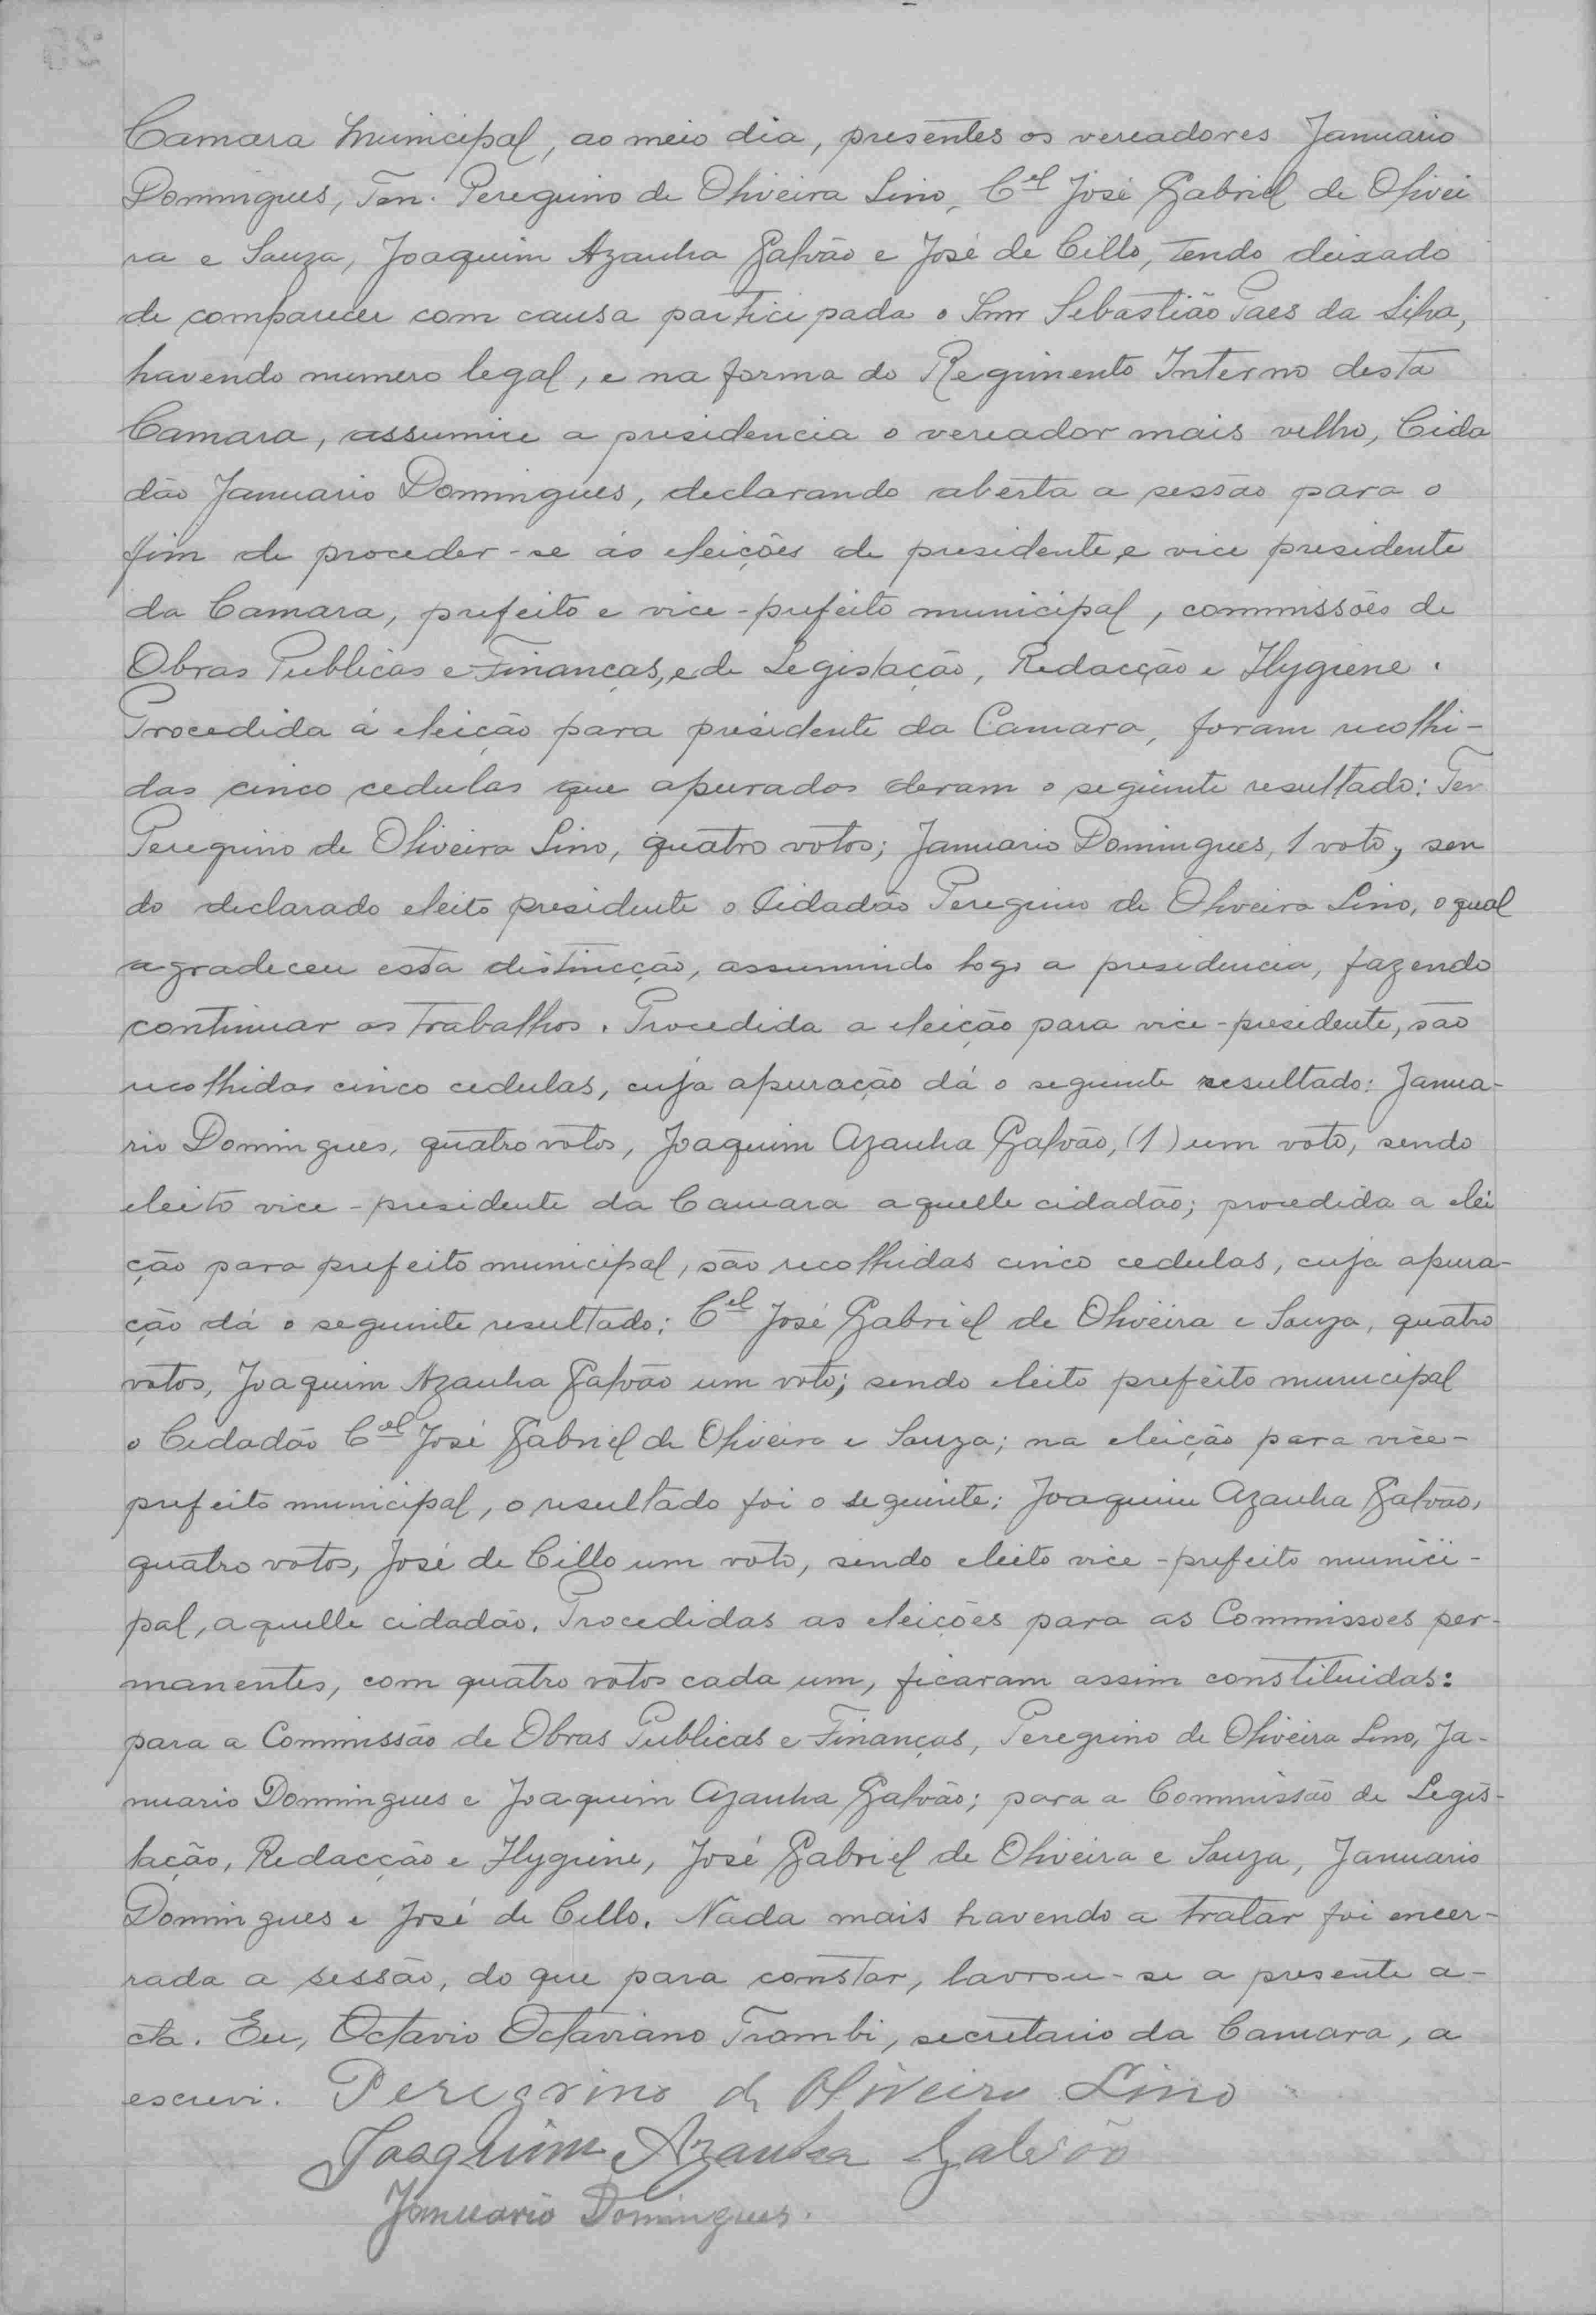 Camara Municipal, ao meio dia, presentes os vereadores Januario
Domingues, Ten. Peregrino de Oliveira Lino, Cel José Gabriel de Olivei
ra e Souza, Joaquim Azanha Galvão e José de Cillo, tendo deixado
de comparecer com causa participada o Snr Sebastião Paes da Silva,
havendo numero legal, e na forma do Regimento Interno desta
Camara, assumiu a presidencia o vereador mais velho, Cida
dão Januario Domingues, declarando aberta a sessão para o
fim de proceder-se ás eleições de presidente e vice presidente
da Camara, prefeito e vice-prefeito municipal, commissões de
Obras Publicas e Finanças, e de Legislação, Redacção e Hygiene.
Procedida á eleição para presidente da Camara, foram recolhi-
das cinco cedulas que apuradas deram o seguinte resultado: Ten
Peregrino de Oliveira Lino, quatro votos; Januario Domingues, 1 voto, sen
do declarado eleito presidente o Cidadão Peregrino de Oliveira Lino, o qual
agradeceu essa distincção, assumindo logo a presidencia, fazendo
continuar os trabalhos. Procedida a eleição para vice-presidente, são
recolhidas cinco cedulas, cuja apuração dá o seguinte resultado: Janua-
rio Domingues, quatro votos, Joaquim Azanha Galvão, (1) um voto, sendo
eleito vice-presidente da Camara aquelle cidadão; procedida a elei
ção para prefeito municipal, são recolhidas cinco cedulas, cuja apura-
ção dá o seguinte resultado: Cel José Gabriel de Oliveira e Souza, quatro
votos, Joaquim Azanha Galvão um voto; sendo eleito prefeito municipal
o Cidadão Cel José Gabriel de Oliveira e Souza; na eleição para vice-
prefeito municipal, o resultado foi o seguinte: Joaquim Azanha Galvão,
quatro votos, José de Cillo um voto, sendo eleito vice-prefeito munici-
pal, aquelle cidadão. Procedidas as eleições para as Commissões per-
manentes, com quatro votos cada um, ficaram assim constituidas:
para a Commissão de Obras Publicas e Finanças, Peregrino de Oliveira Lino, Ja-
nuario Domingues e Joaquim Azanha Galvão; para a Commissão de Legis-
lação, Redacção e Hygiene, José Gabriel de Oliveira e Souza, Januario
Domingues e José de Cillo. Nada mais havendo a tratar foi encer-
rada a sessão, do que para constar, lavrou-se a presente a-
cta. Eu, Octavio Octaviano Trombi, secretario da Camara, a
escrevi. Peregrino de Oliveira Lino
Joaquim Azanha Galvão
Januario Domingues.